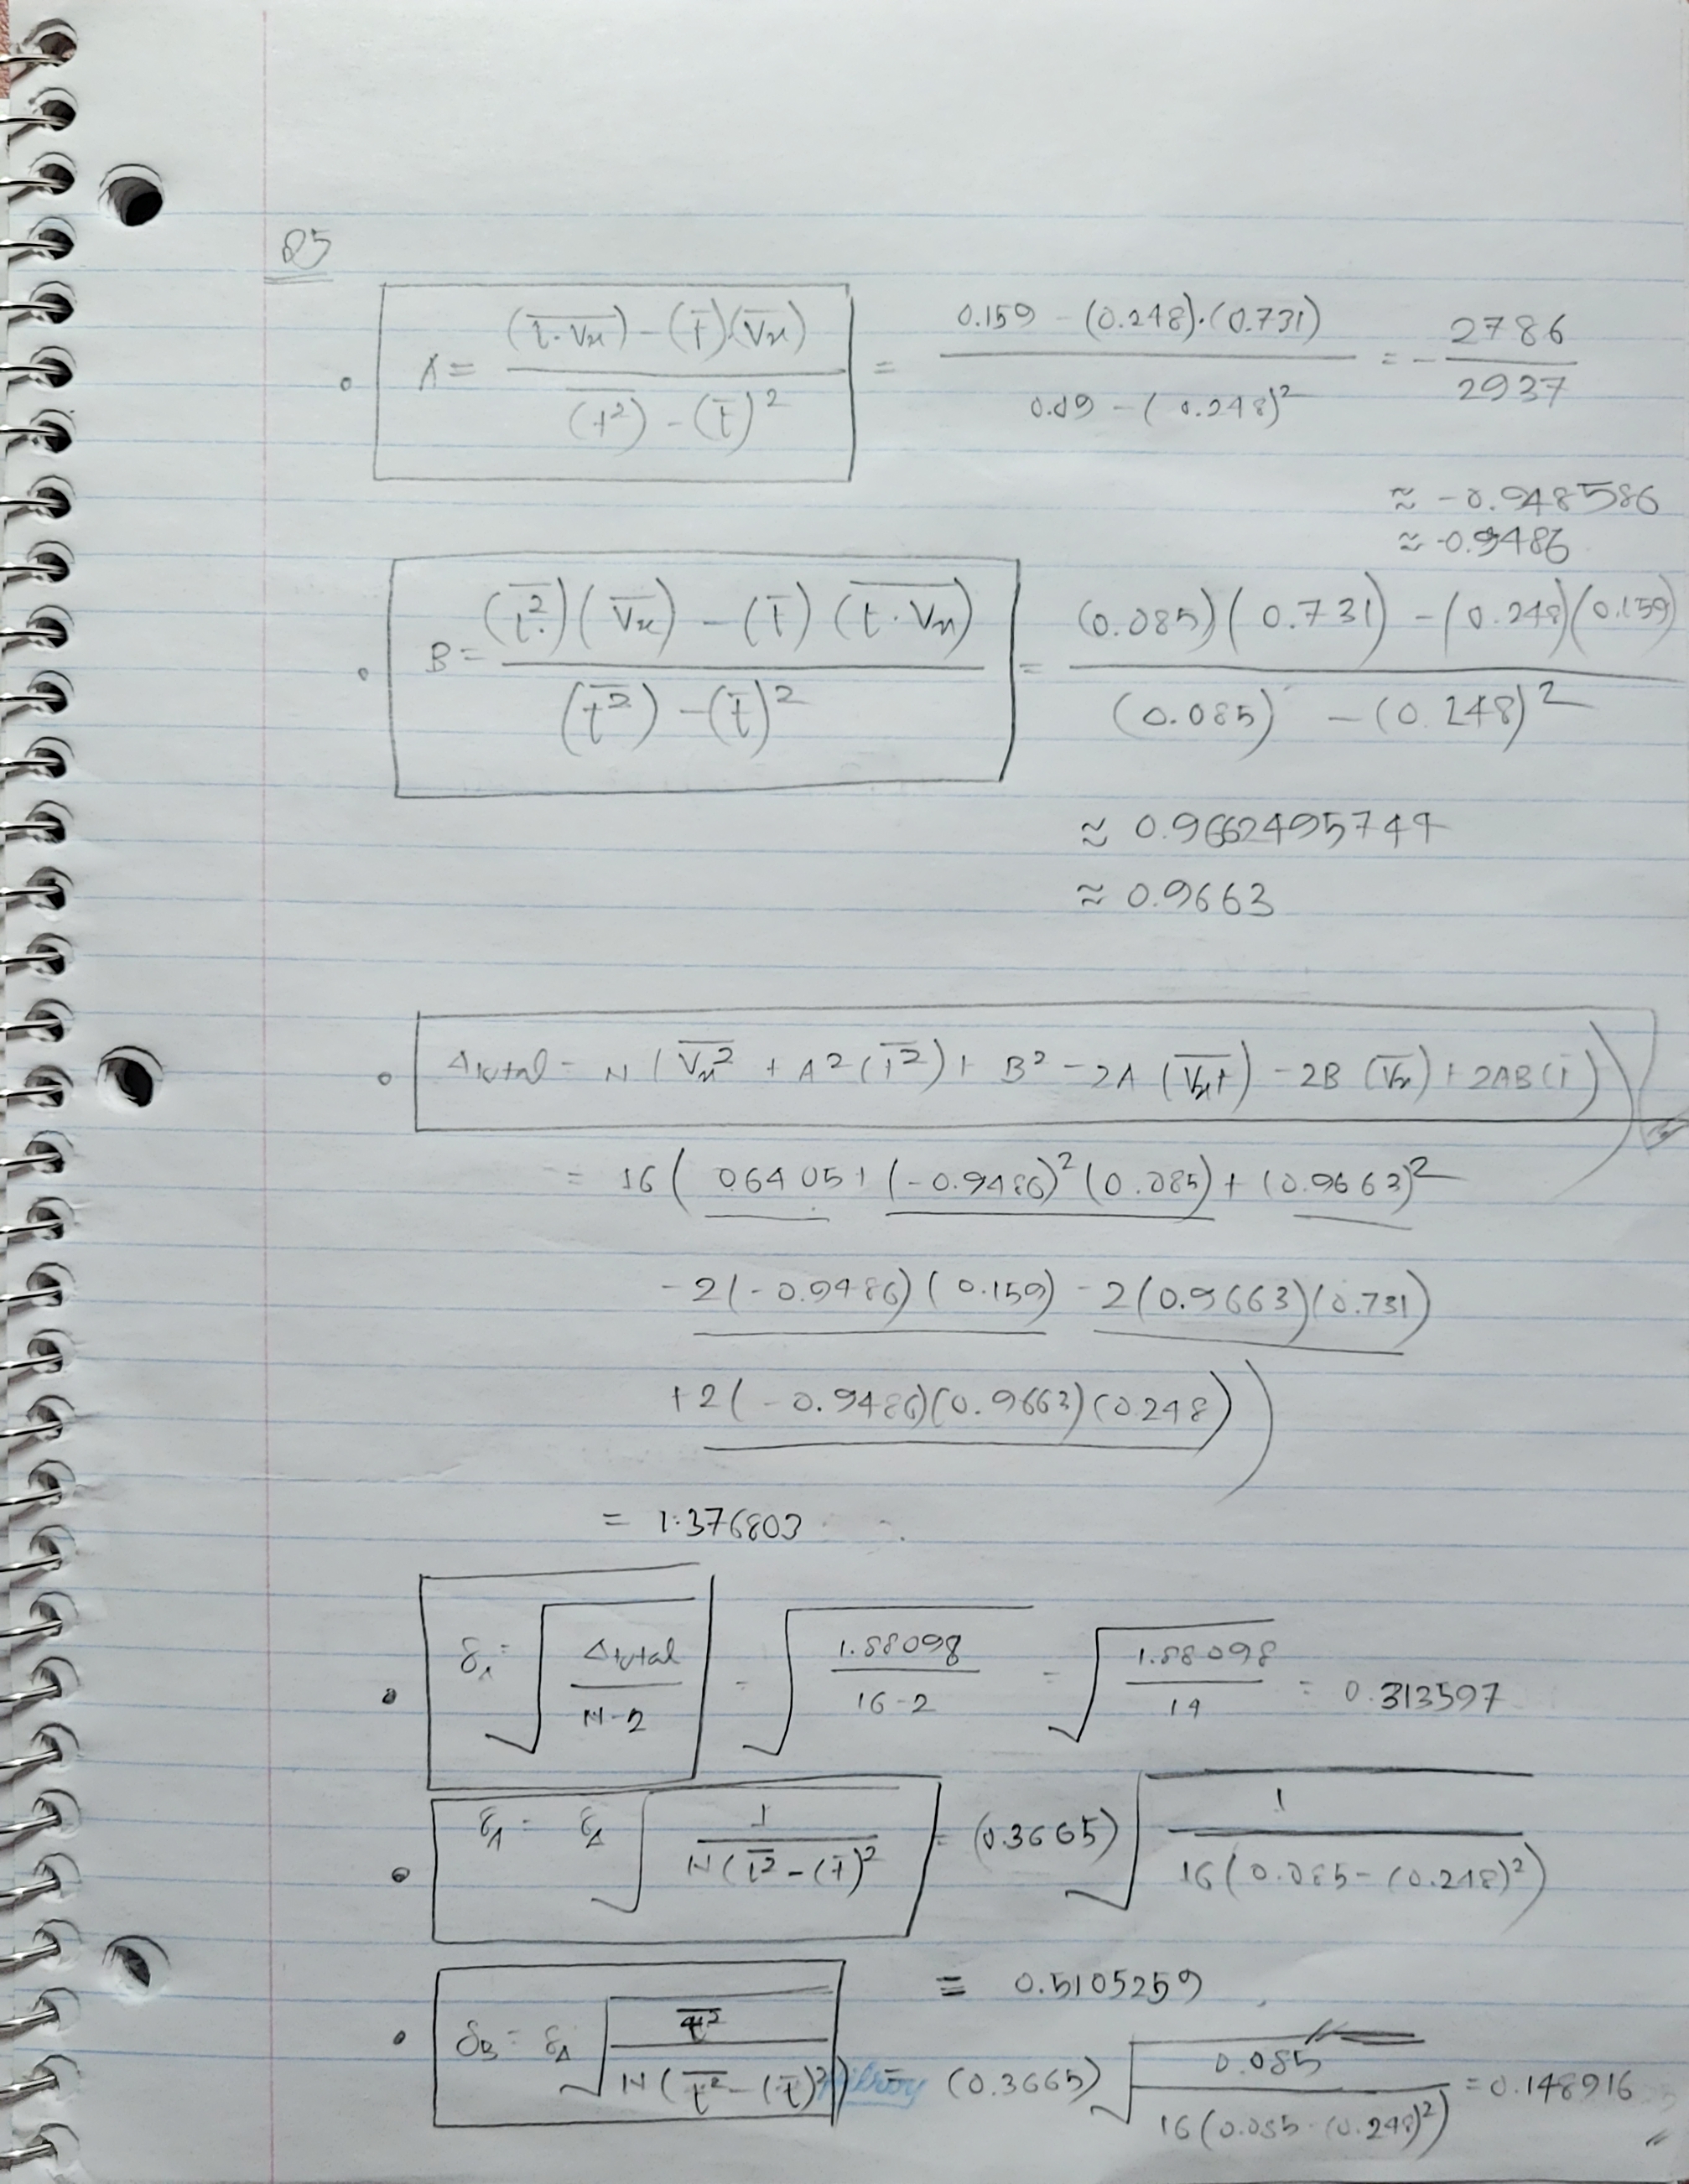 Q5
A = ((t·Vx)‾) − (t̄)·(V̄x) / (t²)‾ − (t̄)² = 0.159 − (0.248)·(0.731) / 0.09 − (0.248)² = − 2786 / 2937
≈ −0.948586
≈ −0.9486
B = (t²‾)(V̄x) − (t̄)(t·Vx‾) / (t²‾) − (t̄)² = (0.085)(0.731) − (0.248)(0.159) / (0.085) − (0.248)²
≈ 0.9662495744
≈ 0.9663
Δtotal = N (Vx²‾ + A²(t²‾) + B² − 2A (Vxt‾) − 2B (V̄x) + 2AB(t̄))
= 16 ( 0.6405 + (−0.9486)²(0.085) + (0.9663)²
−2(−0.9486)(0.159) − 2(0.9663)(0.731)
+2(−0.9486)(0.9663)(0.248) )
= 1.376803
δΔ = √(Δtotal / N−2) = √(1.88098 / 16−2) = √(1.88098 / 14) = 0.313597
δA = δΔ √(1 / N(t²‾ − (t̄)²) = (0.3665) √(1 / 16(0.085 − (0.248)²))
= 0.5105259
δB = δΔ √(t²‾ / N(t²‾ − (t̄)²)) = (0.3665) √(0.085 / 16(0.085 − (0.248)²)) = 0.148916
Hilroy